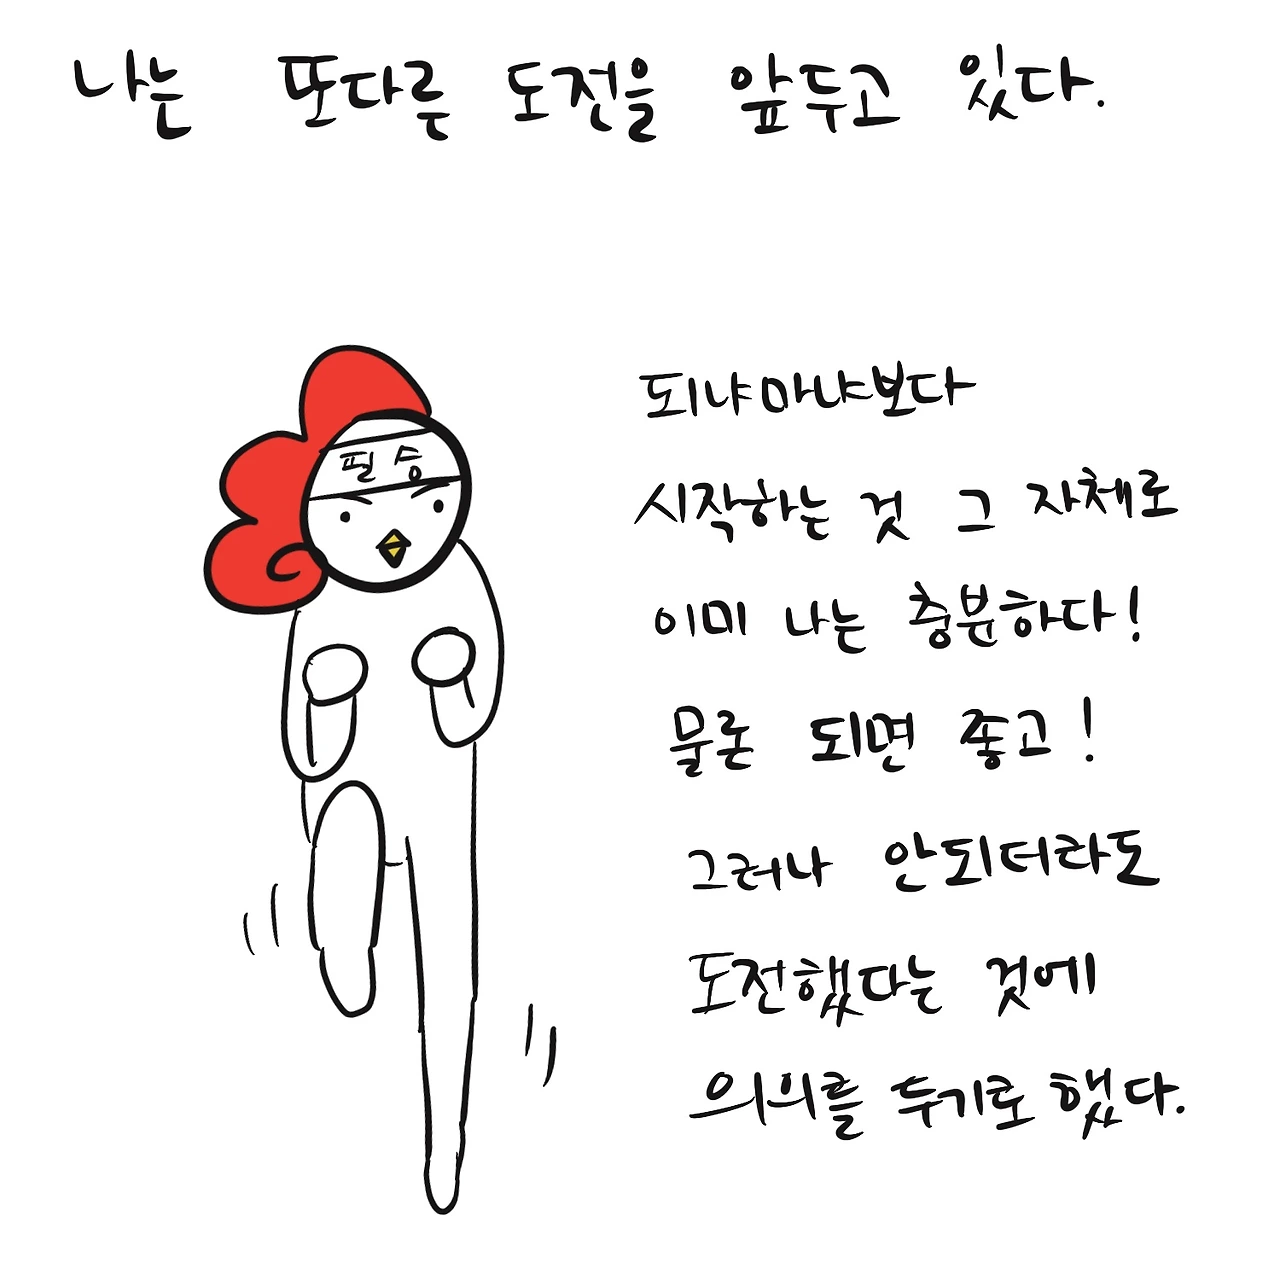 나는 또다른 도전을 앞두고 있다.
필승
되냐마냐보다
시작하는 것 그 자체로
이미 나는 충분하다!
물론 되면 좋고!
그러나 안되더라도
도전했다는 것에
의의를 두기로 했다.